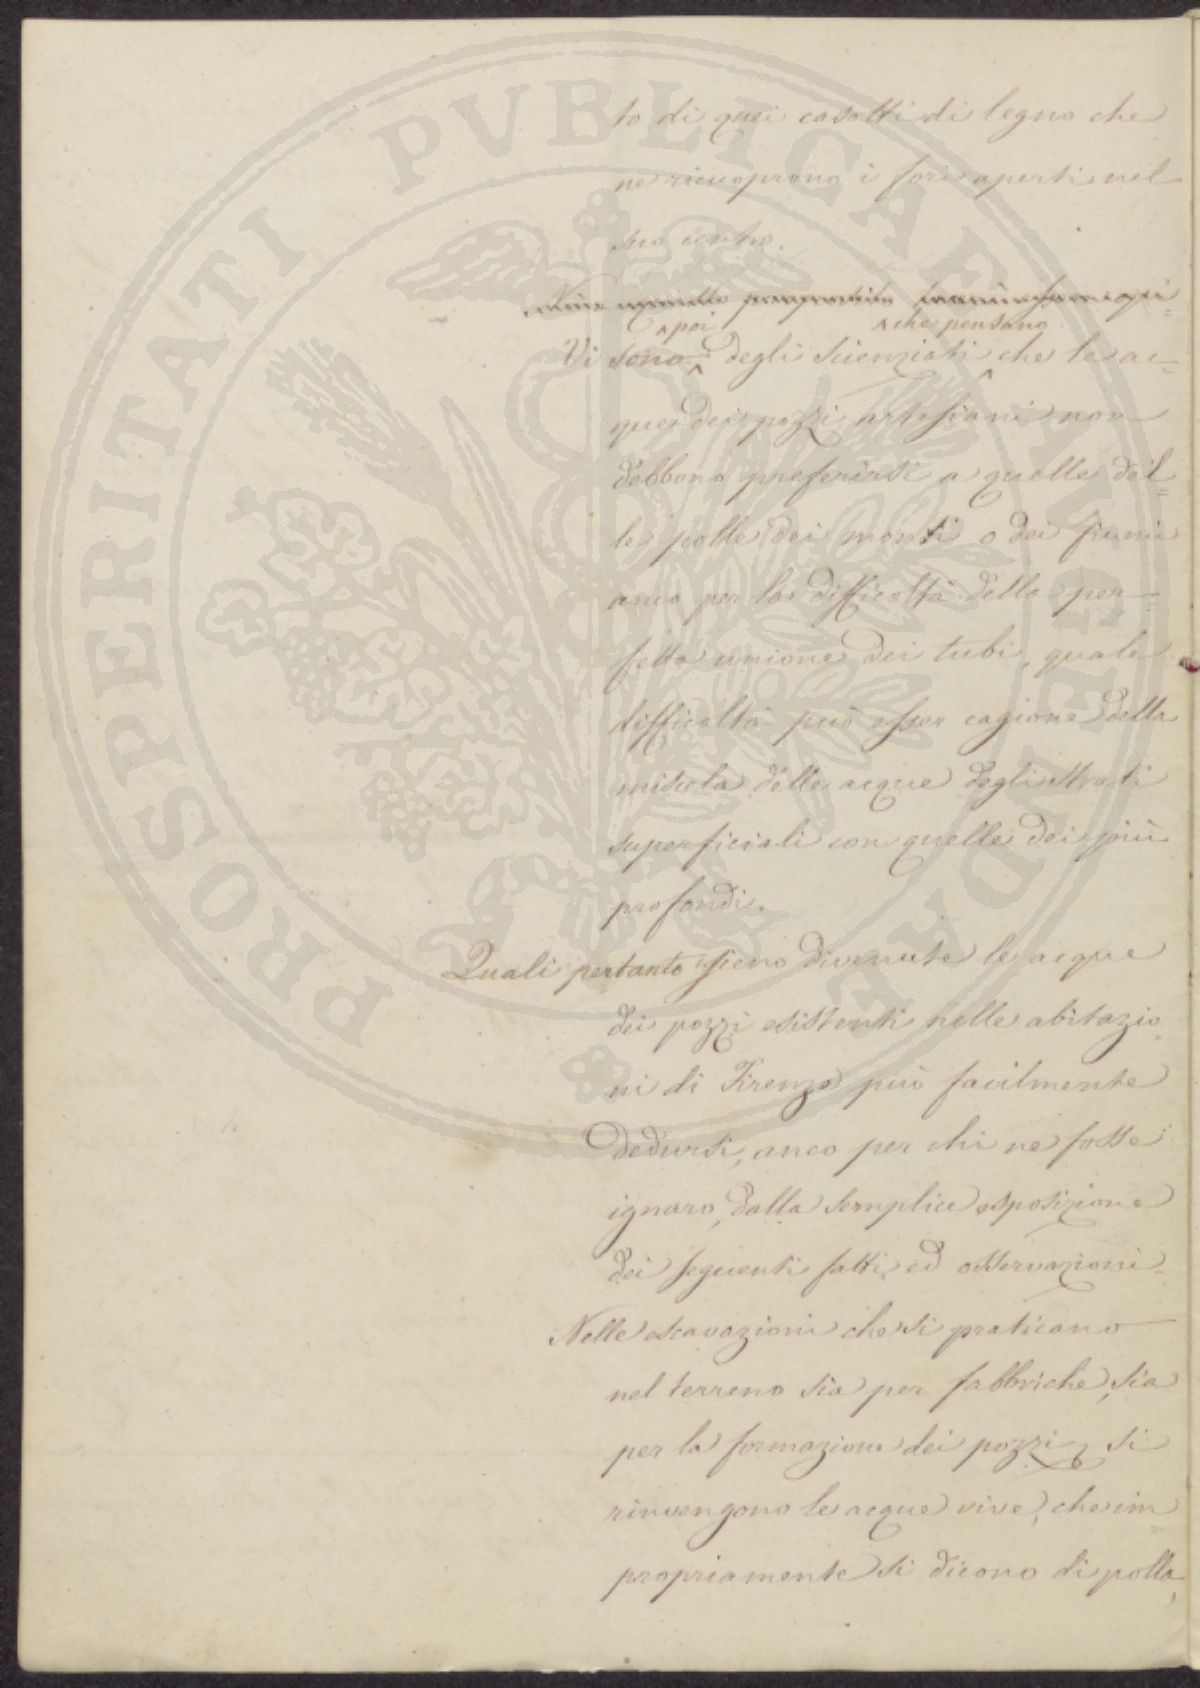 PROSPERITATI PVBLICAE AVGENDAE
to di quei casotti di legno che
ne ricuoprono i fori aperti nel
suo centro.
poi che pensano
Vi sono degli scienziati che le ac=
que dei pozzi artesiani non
debbano preferirsi a quelle del=
le polle dei monti o dei fiumi
anco per la difficoltà della per=
fetta unione dei tubi, quale
difficoltà può esser cagione della
miscela delle acque degli strati
superficiali con quelle dei più
profondi.
Quali pertanto sieno divenute le acque
dei pozzi esistenti nelle abitazio
ni di Firenze può facilmente
dedursi, anco per chi ne fosse
ignaro, dalla semplice esposizione
dei seguenti fatti ed osservazioni.
Nelle escavazioni che si praticano
nel terreno sia per fabbriche, sia
per la formazione dei pozzi si
rinvengono le acque vive, che im
propriamente si dicono di polla,